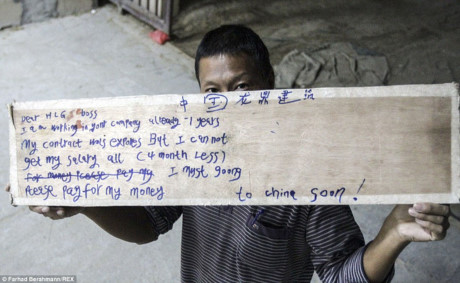 中 国 龙 鼎 建
Dear HLG boss
I am working in your company already -1 years
My contract was expires But I can not
get my salary all (4 month less)
For money please pay my I must going
Please pay for my money to china soon!
© Farhad Berahmann/REX